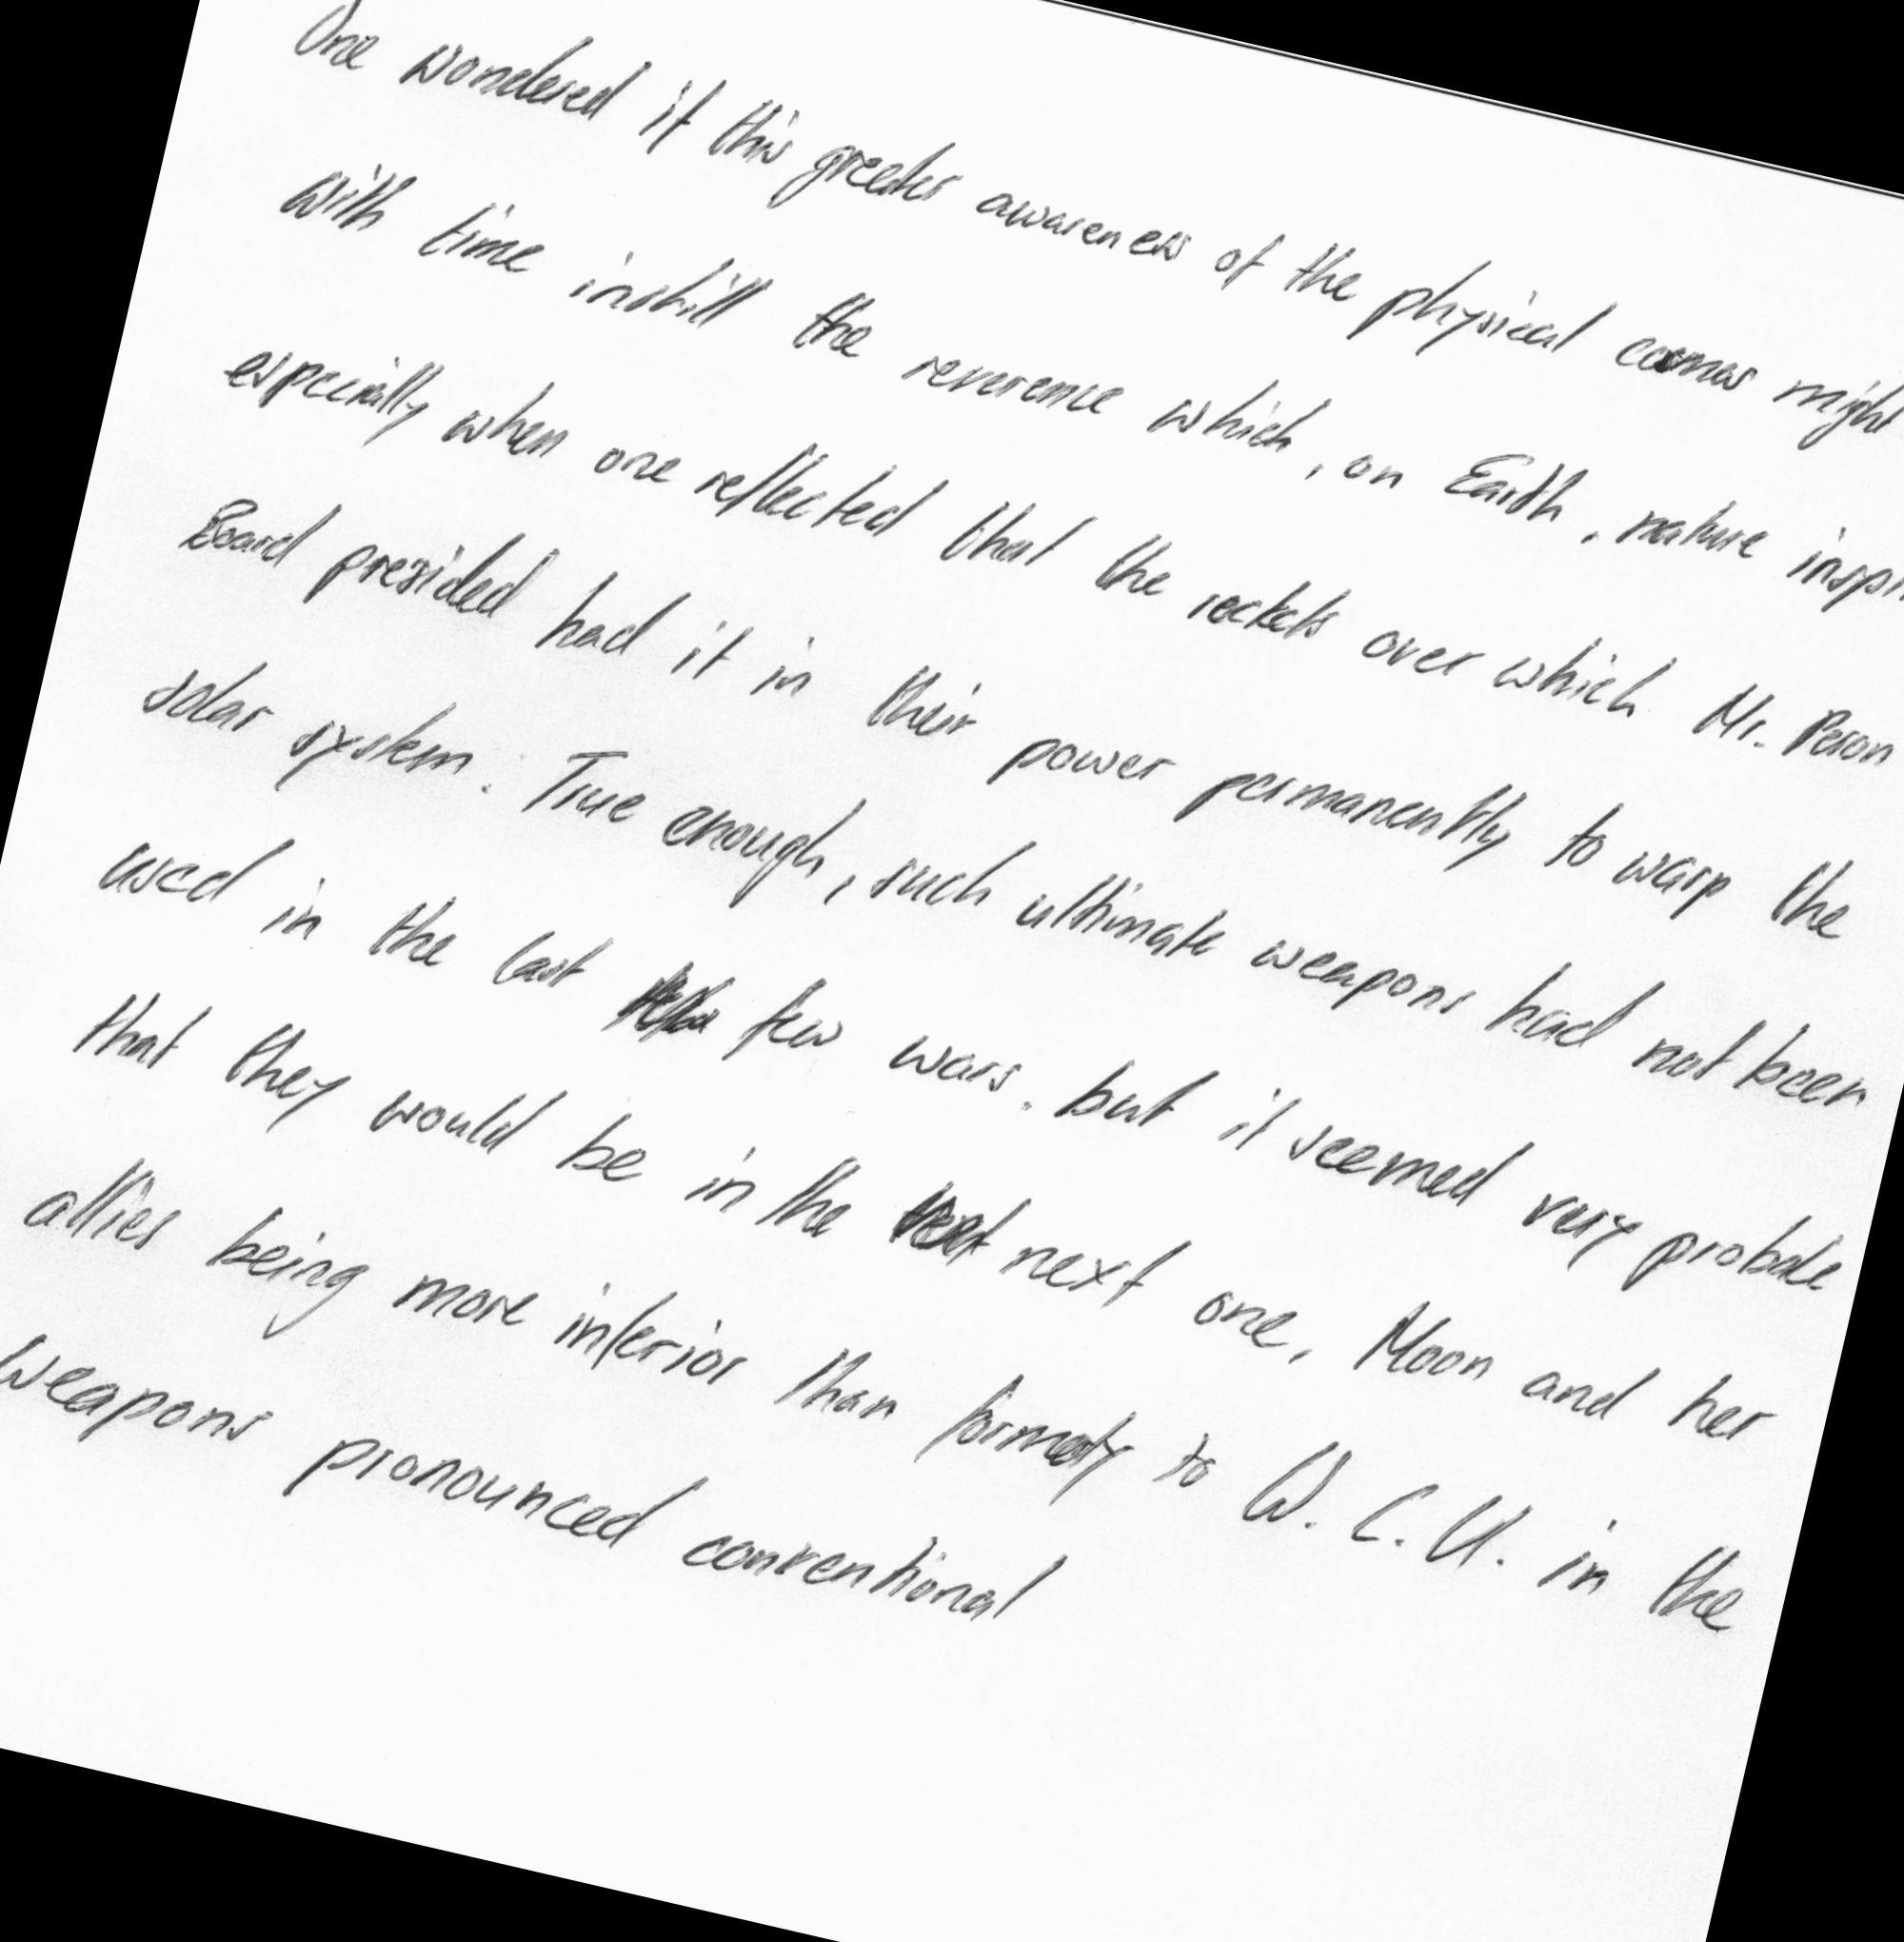 One wondered if this greater awareness of the physical cosmos might
with time instill the reverence which, on Earth, nature
especially when one reflected that the rockets over which Mr. Peron
Board presided had it in their power permanently to warp the
solar system. True enough, such ultimate weapons had not been
used in the last few wars, but it seemed very probable
that they would be in the next one, Moon and her
allies being more inferior than formerly to W. C. U. in the
weapons pronounced conventional